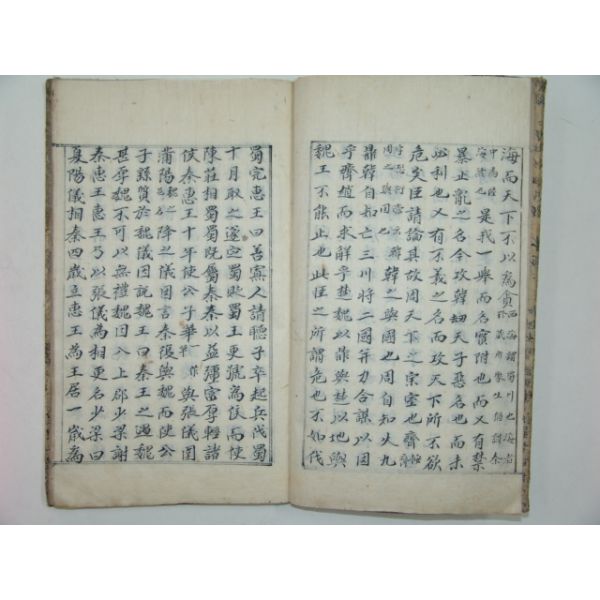 海而天下不以為貪西海謂蜀川也海者
是我一舉而名實附也而又有禁
暴止亂之名今攻韓刼天子惡名也而未
必利也又有不義之名而攻天下所不欲
危矣臣請論其故周天下之宗室也齊
韓之與國也周自知失九
鼎韓自知亡三川將二國并力合謀以因
乎齊趙而求解乎楚魏以鼎與楚以地與
魏王不能止也此臣之所謂危也不如伐
蜀完惠王曰善寡人請聽子卒起兵伐蜀
十月取之遂定蜀貶蜀王更號為侯而使
陳莊相蜀蜀既屬秦秦以益彊富厚輕諸
侯秦惠王十年使公子華與張儀圍
蒲陽降之儀因言秦復與魏而使公
子繇質於魏儀因說魏王曰秦王之遇魏
甚厚魏不可以無禮魏因入上郡少梁謝
秦惠王惠王乃以張儀為相更名少梁曰
夏陽儀相秦四歲立惠王為王居一歲為